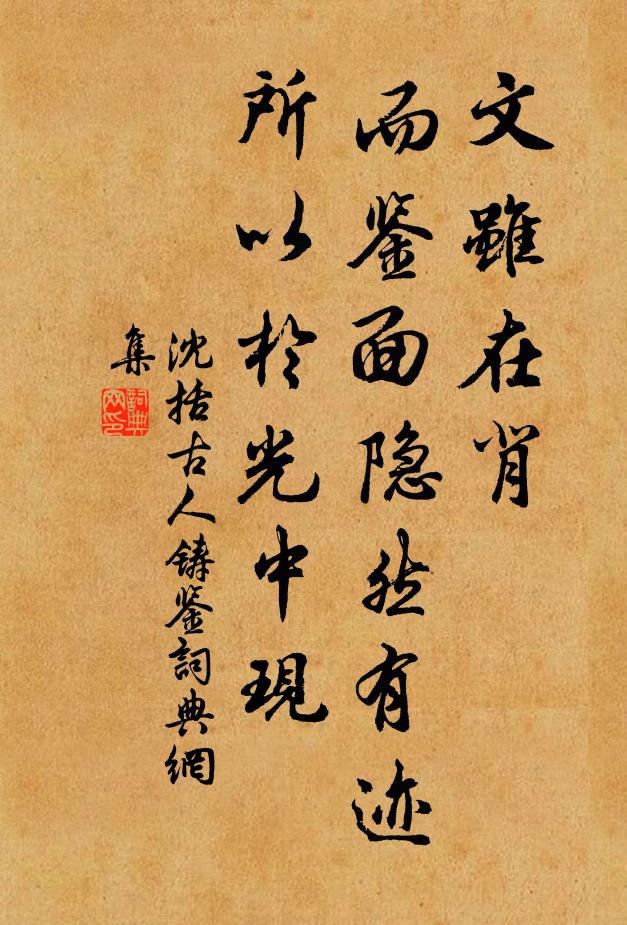 文雖在背
而鉴面隐然有迹
所以於光中現
沈括古人鑄鉴詞典網
集
詞典
网印